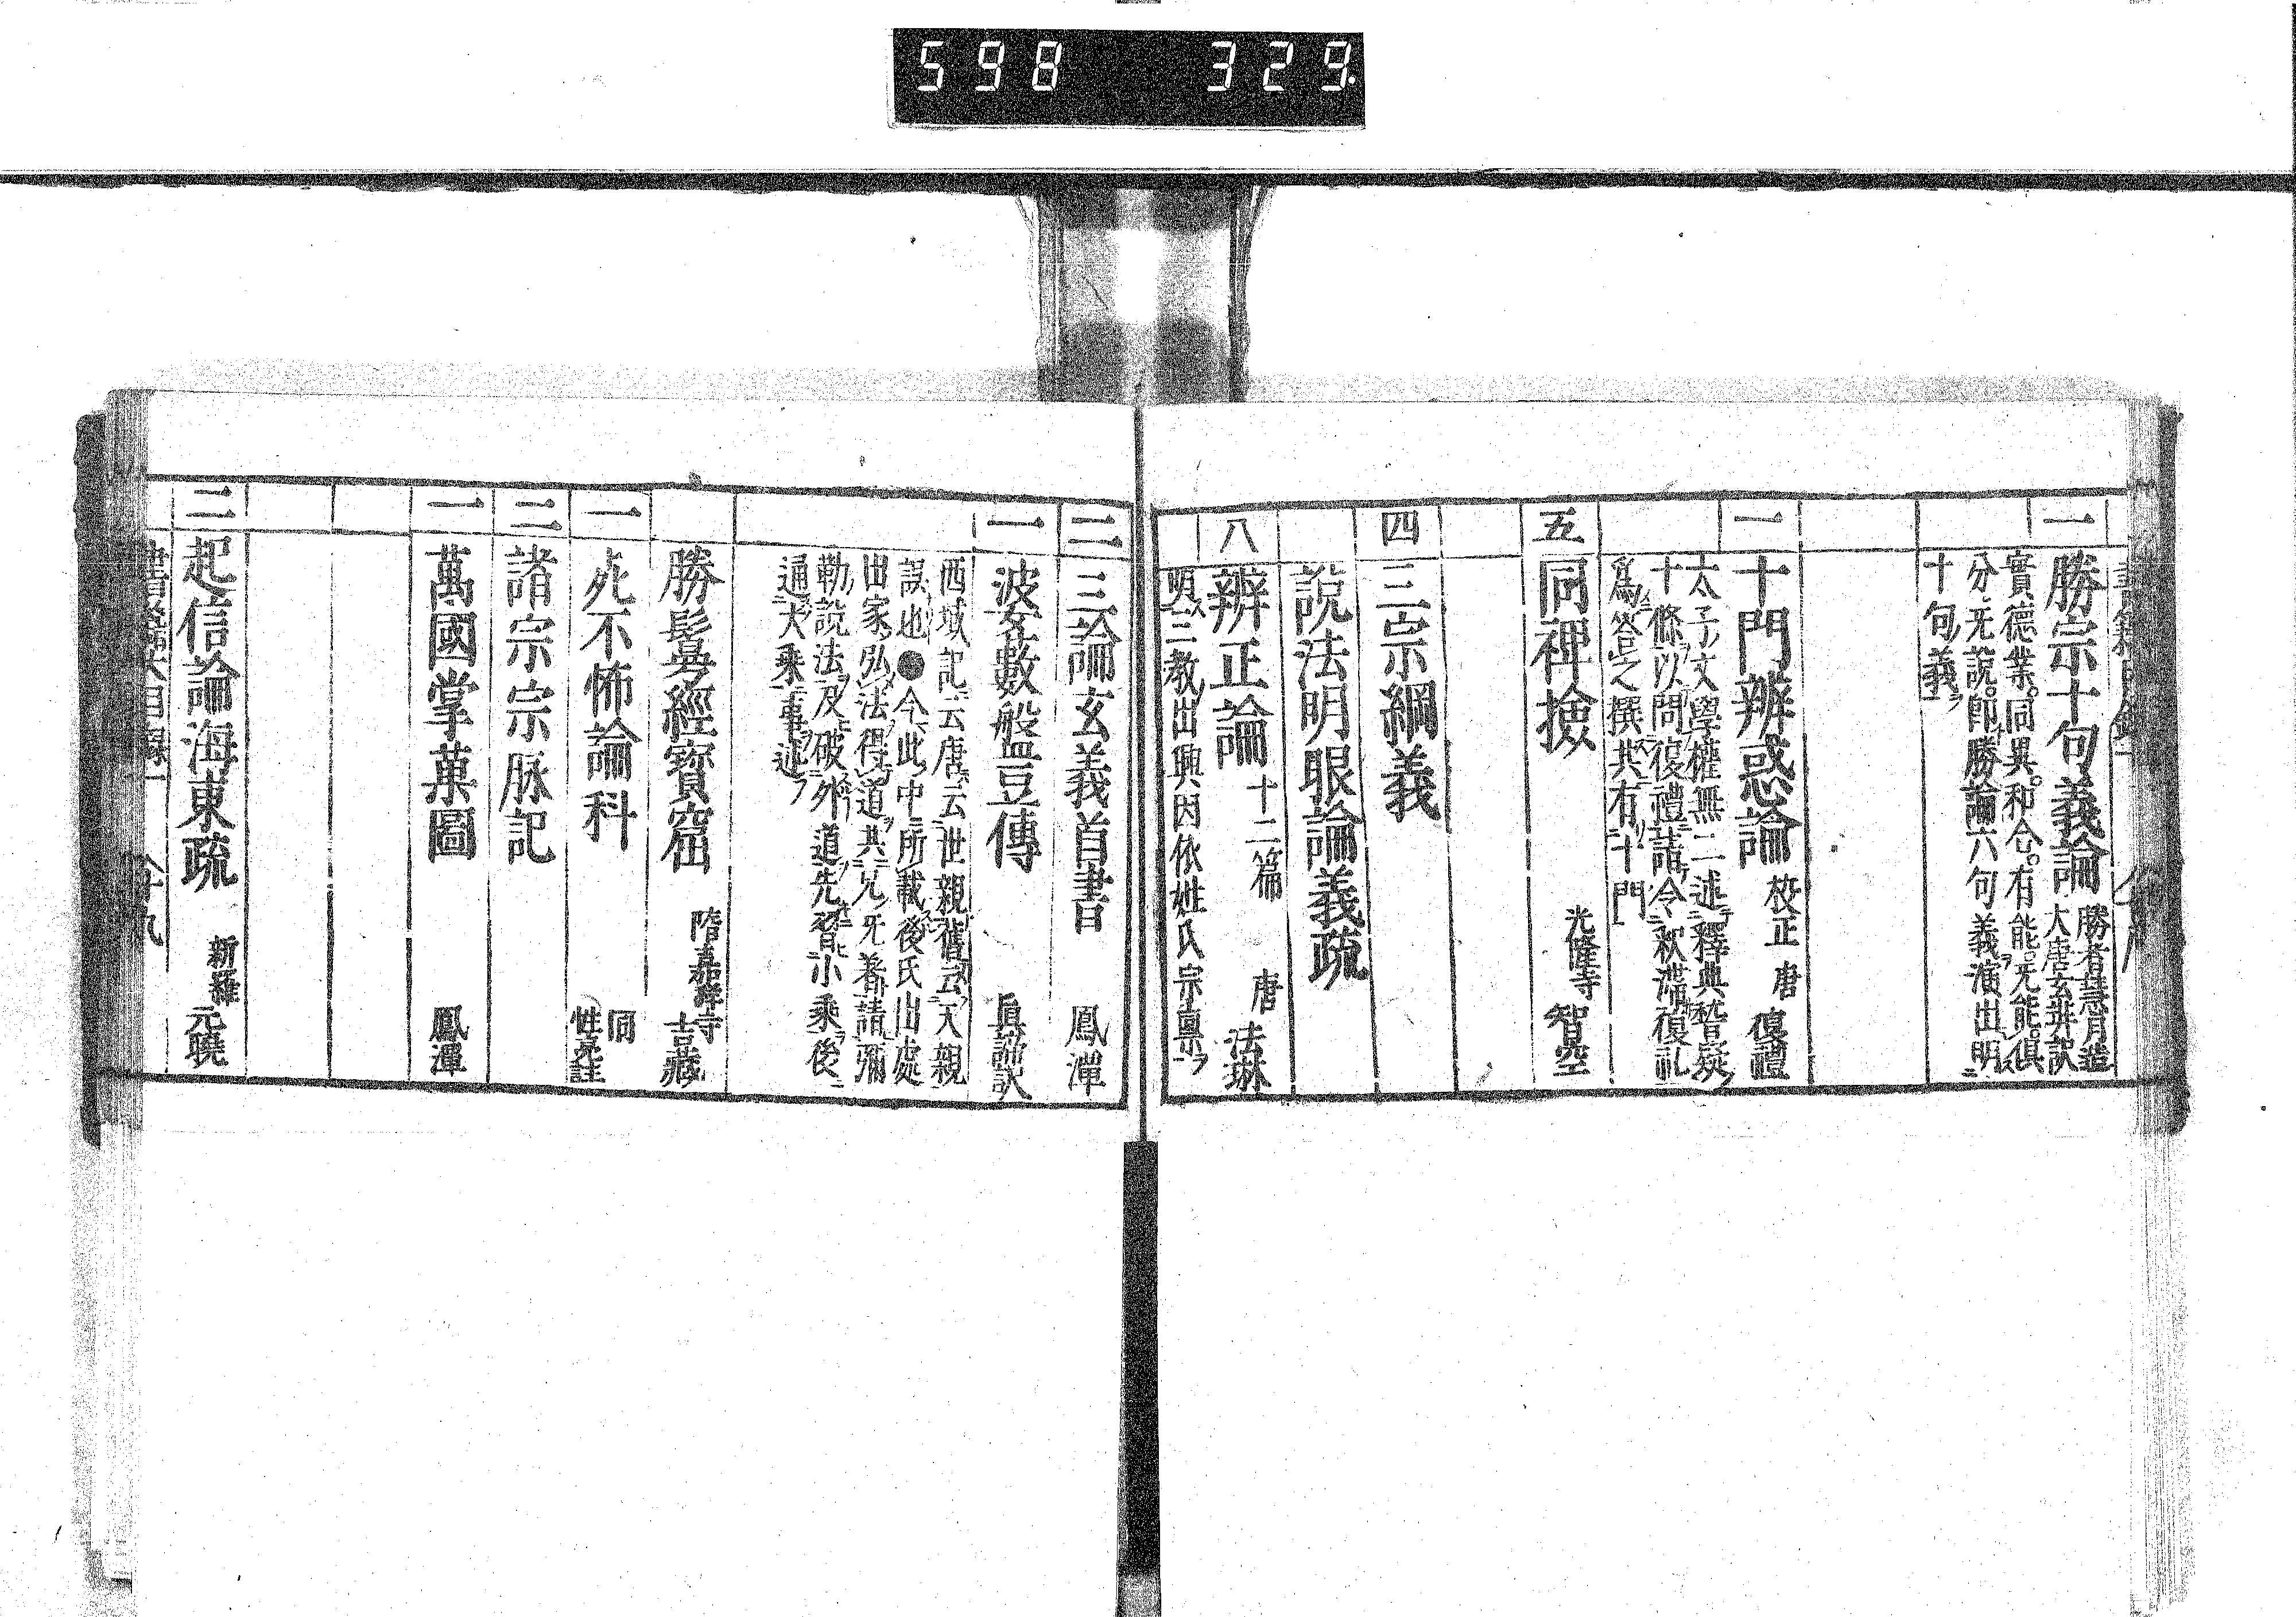 598 329
一 勝宗十句義論 勝者慧月造 大唐玄奘訳
實德業。同異。和合。有能。无能。俱
分。无説。即勝論六句義演出明
十句義
一 十門辨惑論 校正 唐 復禮
太子文學權無二述釋典稽疑
十條以問復禮請令釈滞復礼
爲答之撰共有十門
五 同裨撿 光隆寺 智空
四 三宗綱義
説法明眼論義疏
八 辨正論 十二篇 唐 法琳
明三教出興因依姓氏宗稟ヲ
二 三論玄義首書 鳳潭
一 波娑藪般豆傳 眞諦訳
西域記云唐云世親舊云天親
誤也●今此中所載後氏出處
出家弘法得道共兄无著請彌
勒説法及破外道先習小乘後
通大乘事迹ヲ
勝鬘經寶窟 隋嘉祥寺 吉藏
一 死不怖論科 同 性亮註
三 諸宗宗脉記
一 萬國掌菓圖 鳳潭
二 起信論海東疏 新羅 元曉